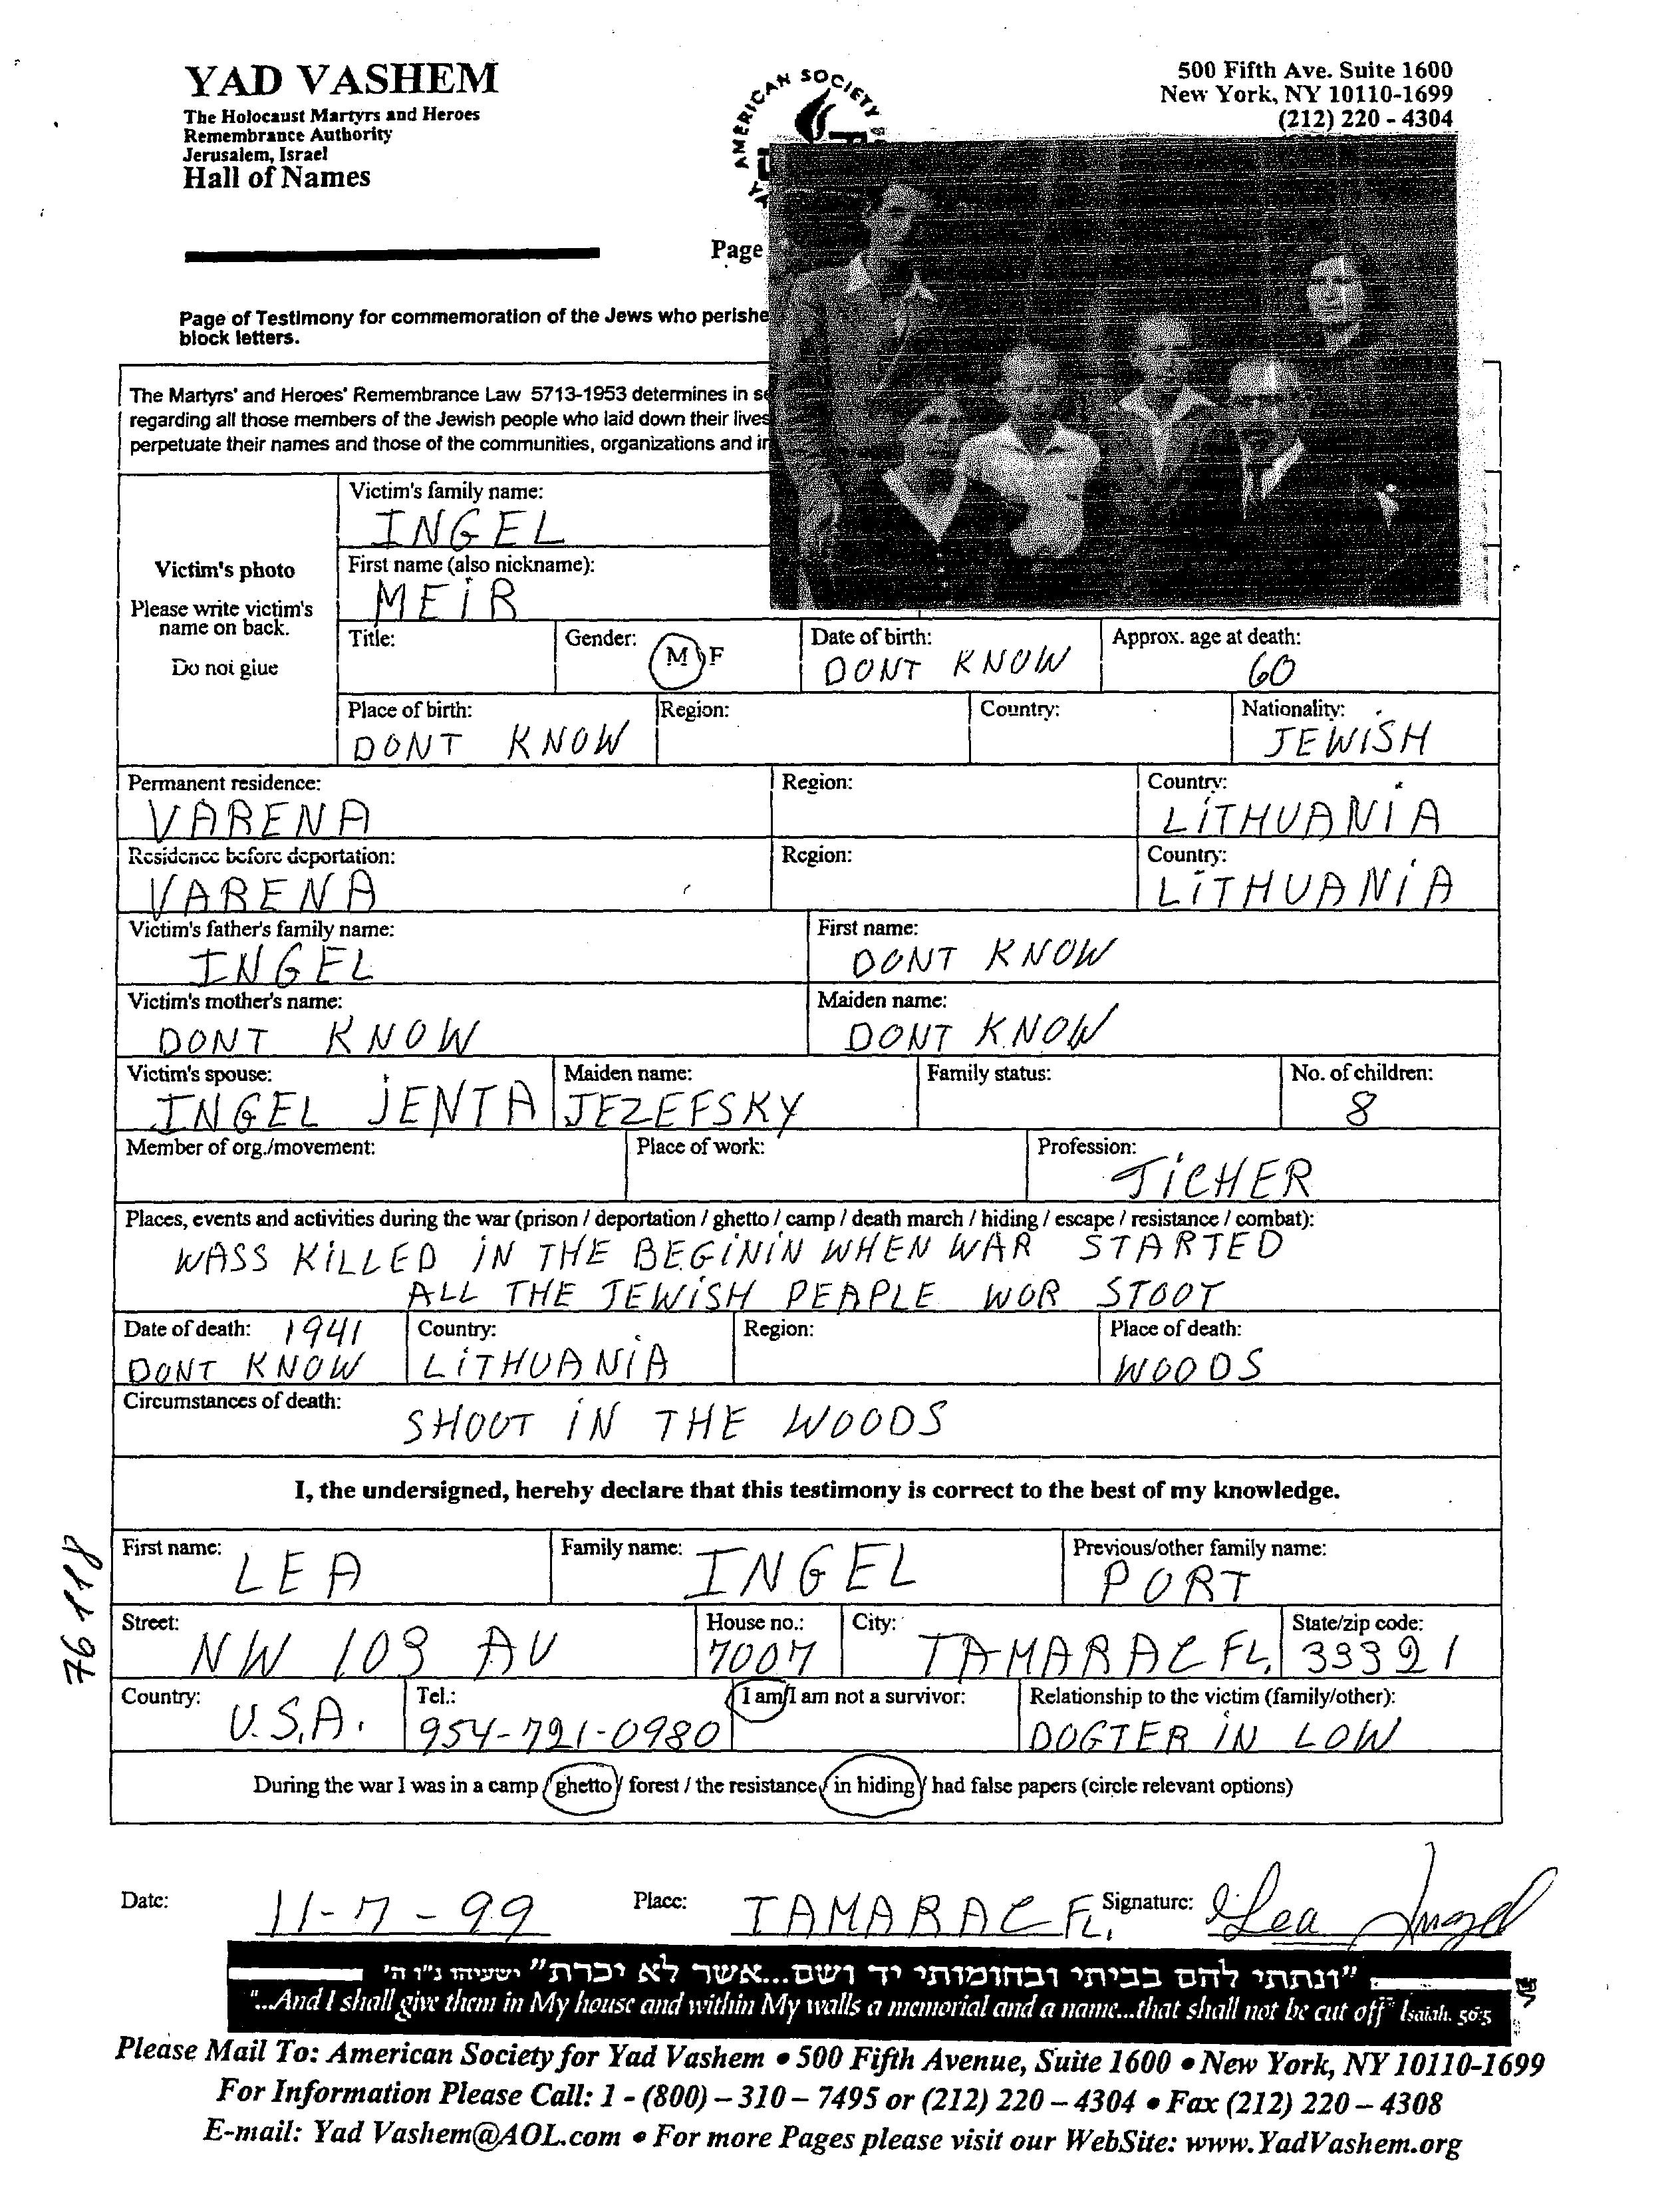 YAD VASHEM
The Holocaust Martyrs and Heroes
Remembrance Authority
Jerusalem, Israel
Hall of Names
AMERICAN SOCIETY
500 Fifth Ave. Suite 1600
New York, NY 10110-1699
(212) 220 - 4304
Page
Page of Testimony for commemoration of the Jews who perishe
block letters.
The Martyrs' and Heroes' Remembrance Law 5713-1953 determines in se
regarding all those members of the Jewish people who laid down their lives
perpetuate their names and those of the communities, organizations and in
Victim's photo
Please write victim's
name on back.
Do not glue
Victim's family name:
INGEL
First name (also nickname):
MEIR
Title: Gender: M F Date of birth: Approx. age at death:
DONT KNOW 60
Place of birth: Region: Country: Nationality:
DONT KNOW JEWISH
Permanent residence: Region: Country:
VARENA LITHUANIA
Residence before deportation: Region: Country:
VARENA LITHUANIA
Victim's father's family name: First name:
INGEL DONT KNOW
Victim's mother's name: Maiden name:
DONT KNOW DONT KNOW
Victim's spouse: Maiden name: Family status: No. of children:
INGEL JENTA JEZEFSKY 8
Member of org./movement: Place of work: Profession:
TICHER
Places, events and activities during the war (prison / deportation / ghetto / camp / death march / hiding / escape / resistance / combat):
WASS KILLED IN THE BEGININ WHEN WAR STARTED
ALL THE JEWISH PEAPLE WOR STOOT
Date of death: 1941 Country: Region: Place of death:
DONT KNOW LITHUANIA WOODS
Circumstances of death:
SHOOT IN THE WOODS
I, the undersigned, hereby declare that this testimony is correct to the best of my knowledge.
First name: Family name: Previous/other family name:
LEA INGEL PORT
Street: House no.: City: State/zip code:
NW 103 AV 7007 TAMARAC FL. 33321
Country: Tel.: I am/I am not a survivor: Relationship to the victim (family/other):
U.S.A. 954-721-0980 DOGTER IN LOW
During the war I was in a camp / ghetto / forest / the resistance / in hiding / had false papers (circle relevant options)
76118
Date: 11-7-99 Place: TAMARAC FL. Signature: Lea Ingel
"ונתתי להם בביתי ובחומותי יד ושם...אשר לא יכרת" ישעיהו נ"ו ה'
"...And I shall give them in My house and within My walls a memorial and a name...that shall not be cut off" Isaiah. 56:5
Please Mail To: American Society for Yad Vashem • 500 Fifth Avenue, Suite 1600 • New York, NY 10110-1699
For Information Please Call: 1 - (800) – 310 – 7495 or (212) 220 – 4304 • Fax (212) 220 – 4308
E-mail: Yad Vashem@AOL.com • For more Pages please visit our WebSite: www.YadVashem.org